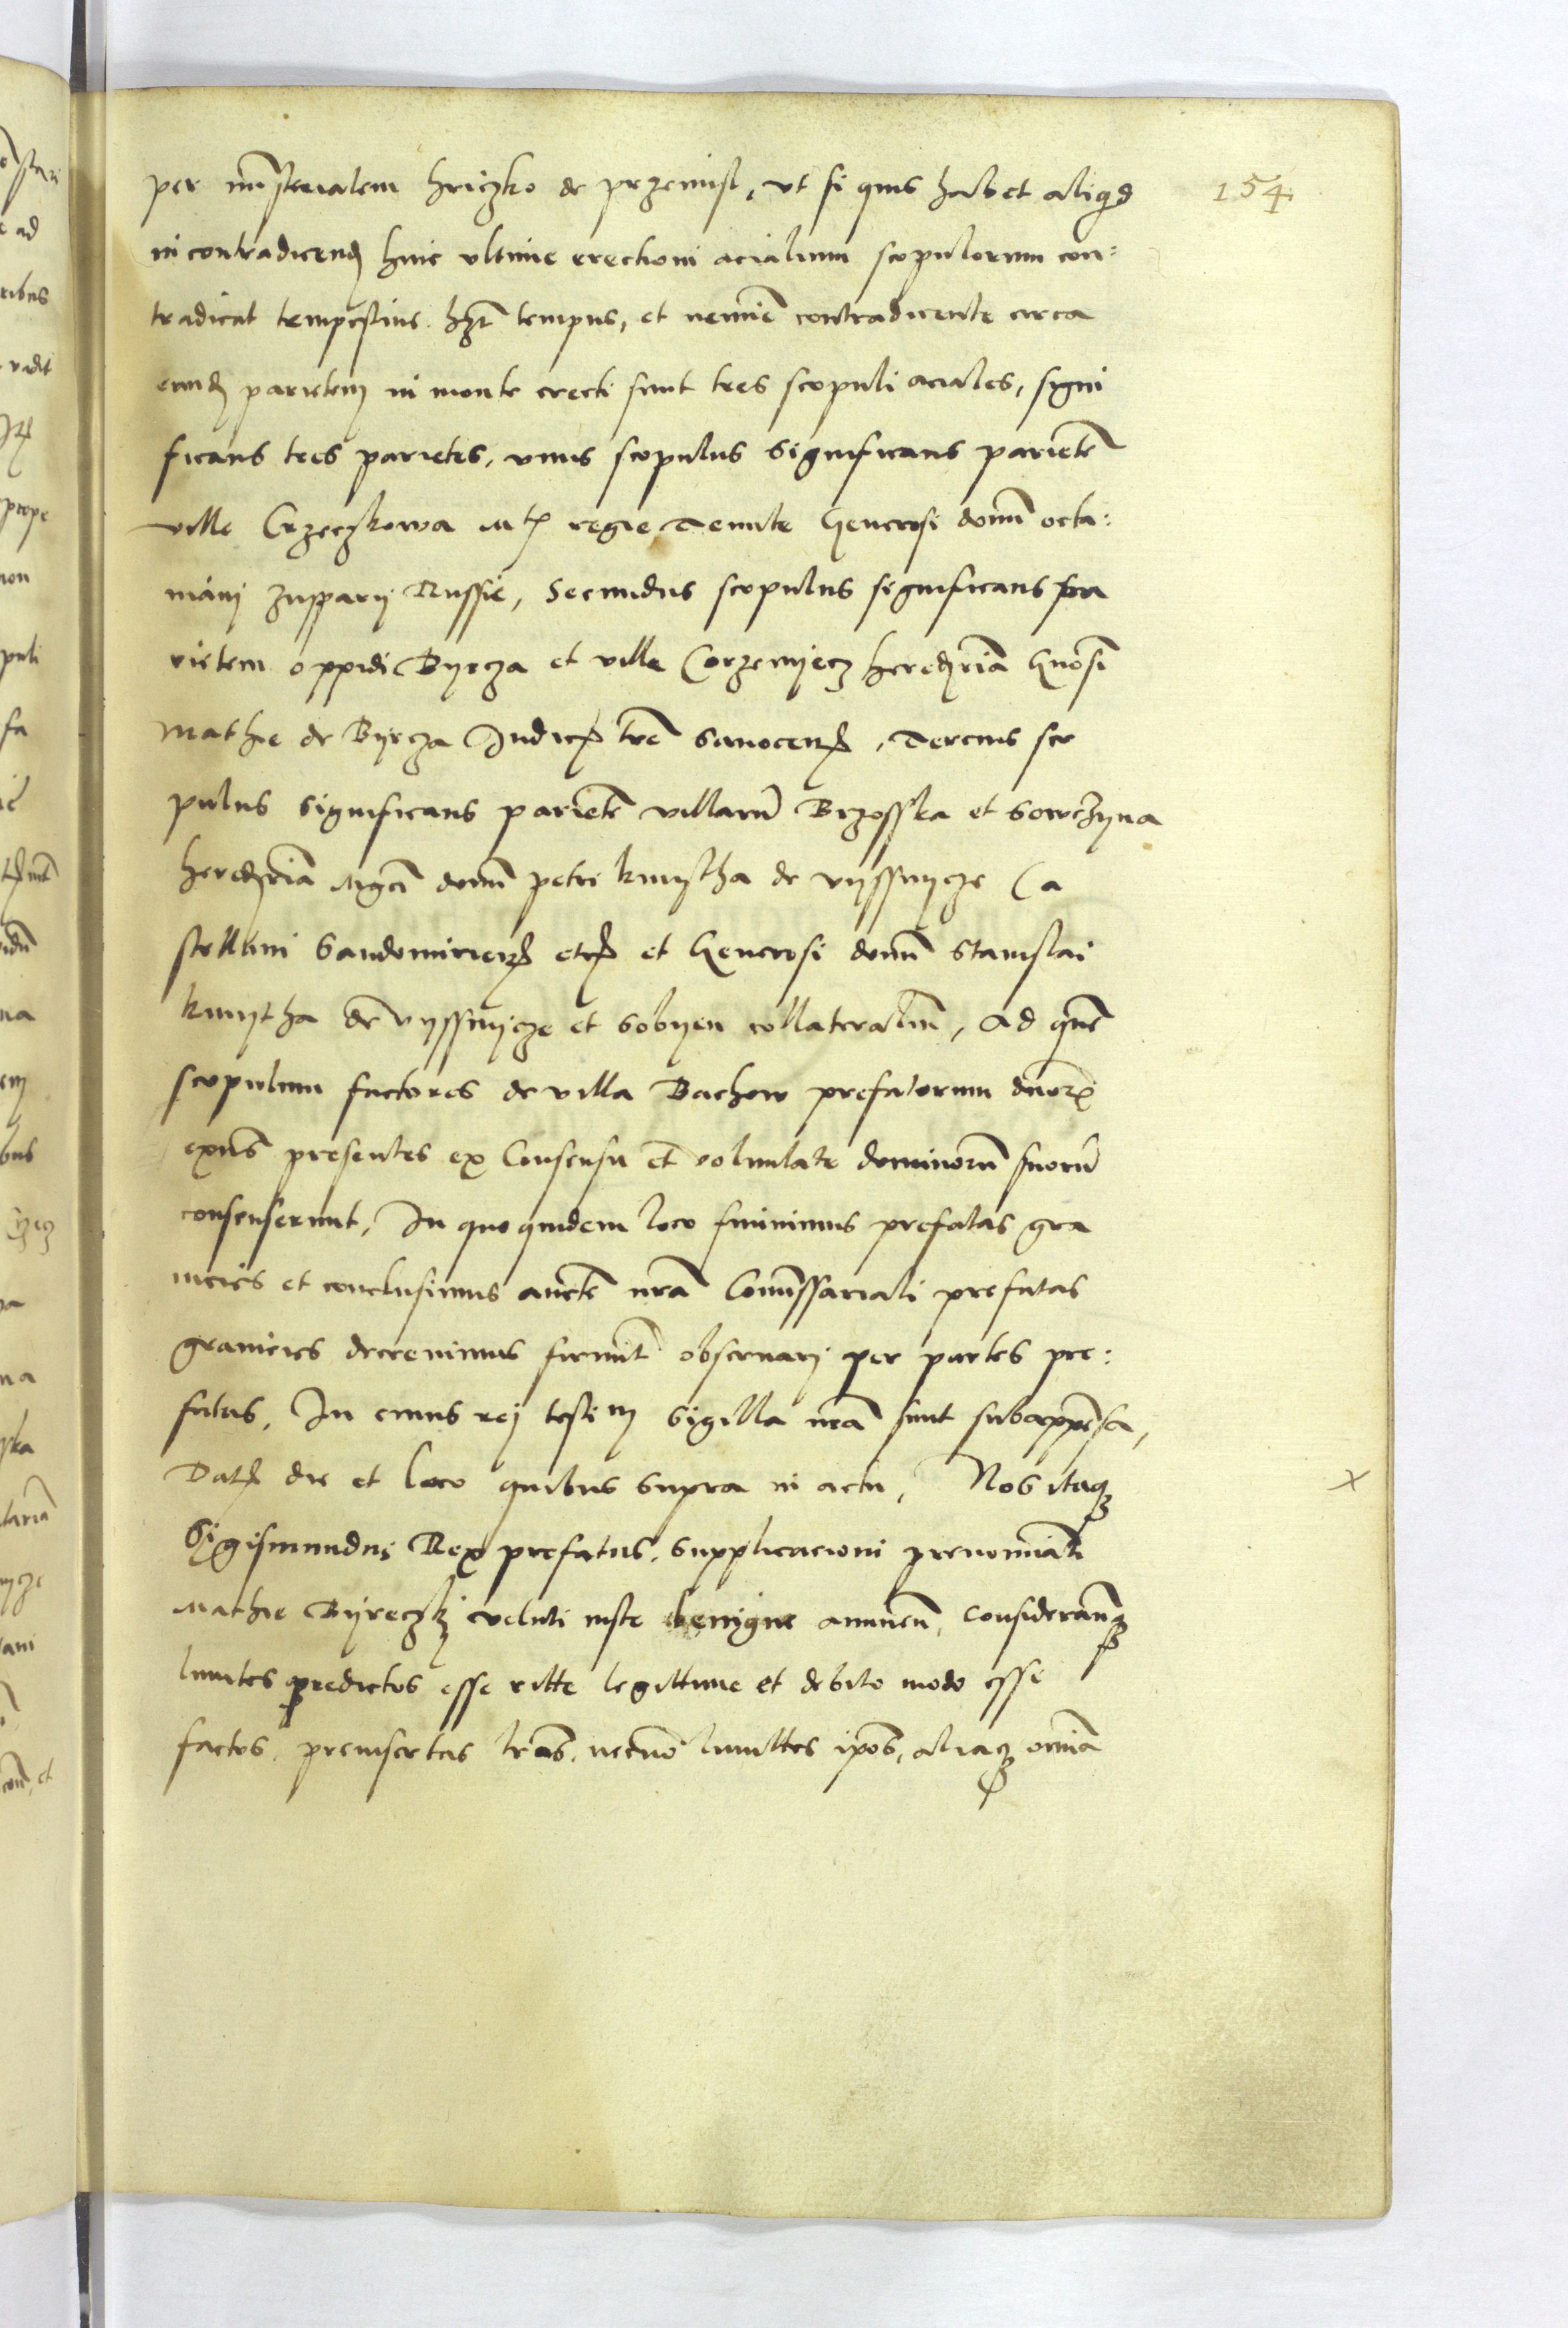 154
per mīsterialem hriczko de przemisl, vt si quis habet aliqd
in contradicend huic vltime erectioni acialium scopulorum con:
tradicat tempestius. hzt tempus, et nemīe contradicente circa
eund parietem in monte erecti sunt tres scopuli aciales, signi
ficans tres parietes, vnus scopulus significans parietē
ville Crzeczkowa Mtis regie Tenute Generosi domī octa:
mani zupparij Russie, Secundus scopulus significans pa
rietem oppidi Byrcza et ville Corzenyecz hereditariā Gnosi
Mathie de Byrcza Judicis trē Sanocens, Tercius sco
pulus significans parietē villarū Brzosska et Sowczyna
hereditariā Mgci domī petri kmytha de vyssnycze Ca
stellani Sandomiriens etc et Generosi domī Stanislai
kmytha de vyssnycze et Sobyen collateraliū, Ad quē
scopulum factores de villa Bachow prefatorum dnorū
exns presentes ex Consensu et volutate dominorū suorū
consenserunt, In quo quidem loco finiuimus prefatas gra
nicies et conclusimus aucte nra Comīssariali prefatas
granicies decreuimus firmit obseruarj per partes pre:
fatas, In cuius rej testim Sigilla nra sunt subappēsa,
Dats die et loco quibus supra in actu, Nos itaqz
Sigismundus Rex prefatus, Supplicacioni prenomīati
Mathie Byreczkj veluti iuste benigne annuen, Considerānqz
limites predictos esse ritte legittime et debito modo esse
factos, preinsertas lras, necnō limittes ipos, aliaqz omīa
x